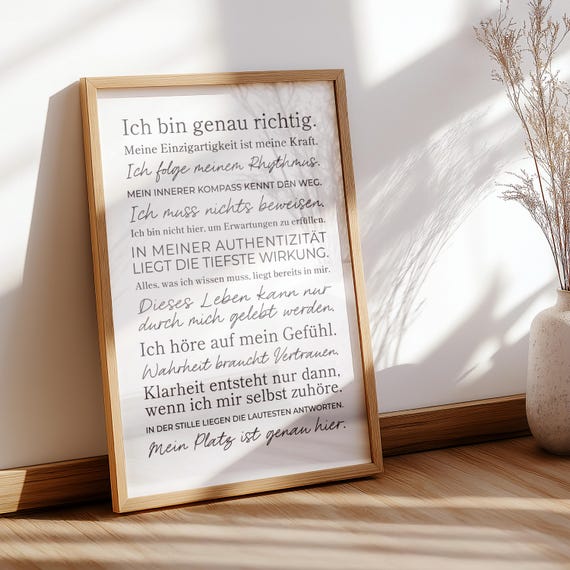 Ich bin genau richtig.
Meine Einzigartigkeit ist meine Kraft.
Ich folge meinem Rhythmus.
MEIN INNERER KOMPASS KENNT DEN WEG.
Ich muss nichts beweisen.
Ich bin nicht hier, um Erwartungen zu erfüllen.
IN MEINER AUTHENTIZITÄT
LIEGT DIE TIEFSTE WIRKUNG.
Alles, was ich wissen muss, liegt bereits in mir.
Dieses Leben kann nur
durch mich gelebt werden.
Ich höre auf mein Gefühl.
Wahrheit braucht Vertrauen.
Klarheit entsteht nur dann,
wenn ich mir selbst zuhöre.
IN DER STILLE LIEGEN DIE LAUTESTEN ANTWORTEN.
Mein Platz ist genau hier.